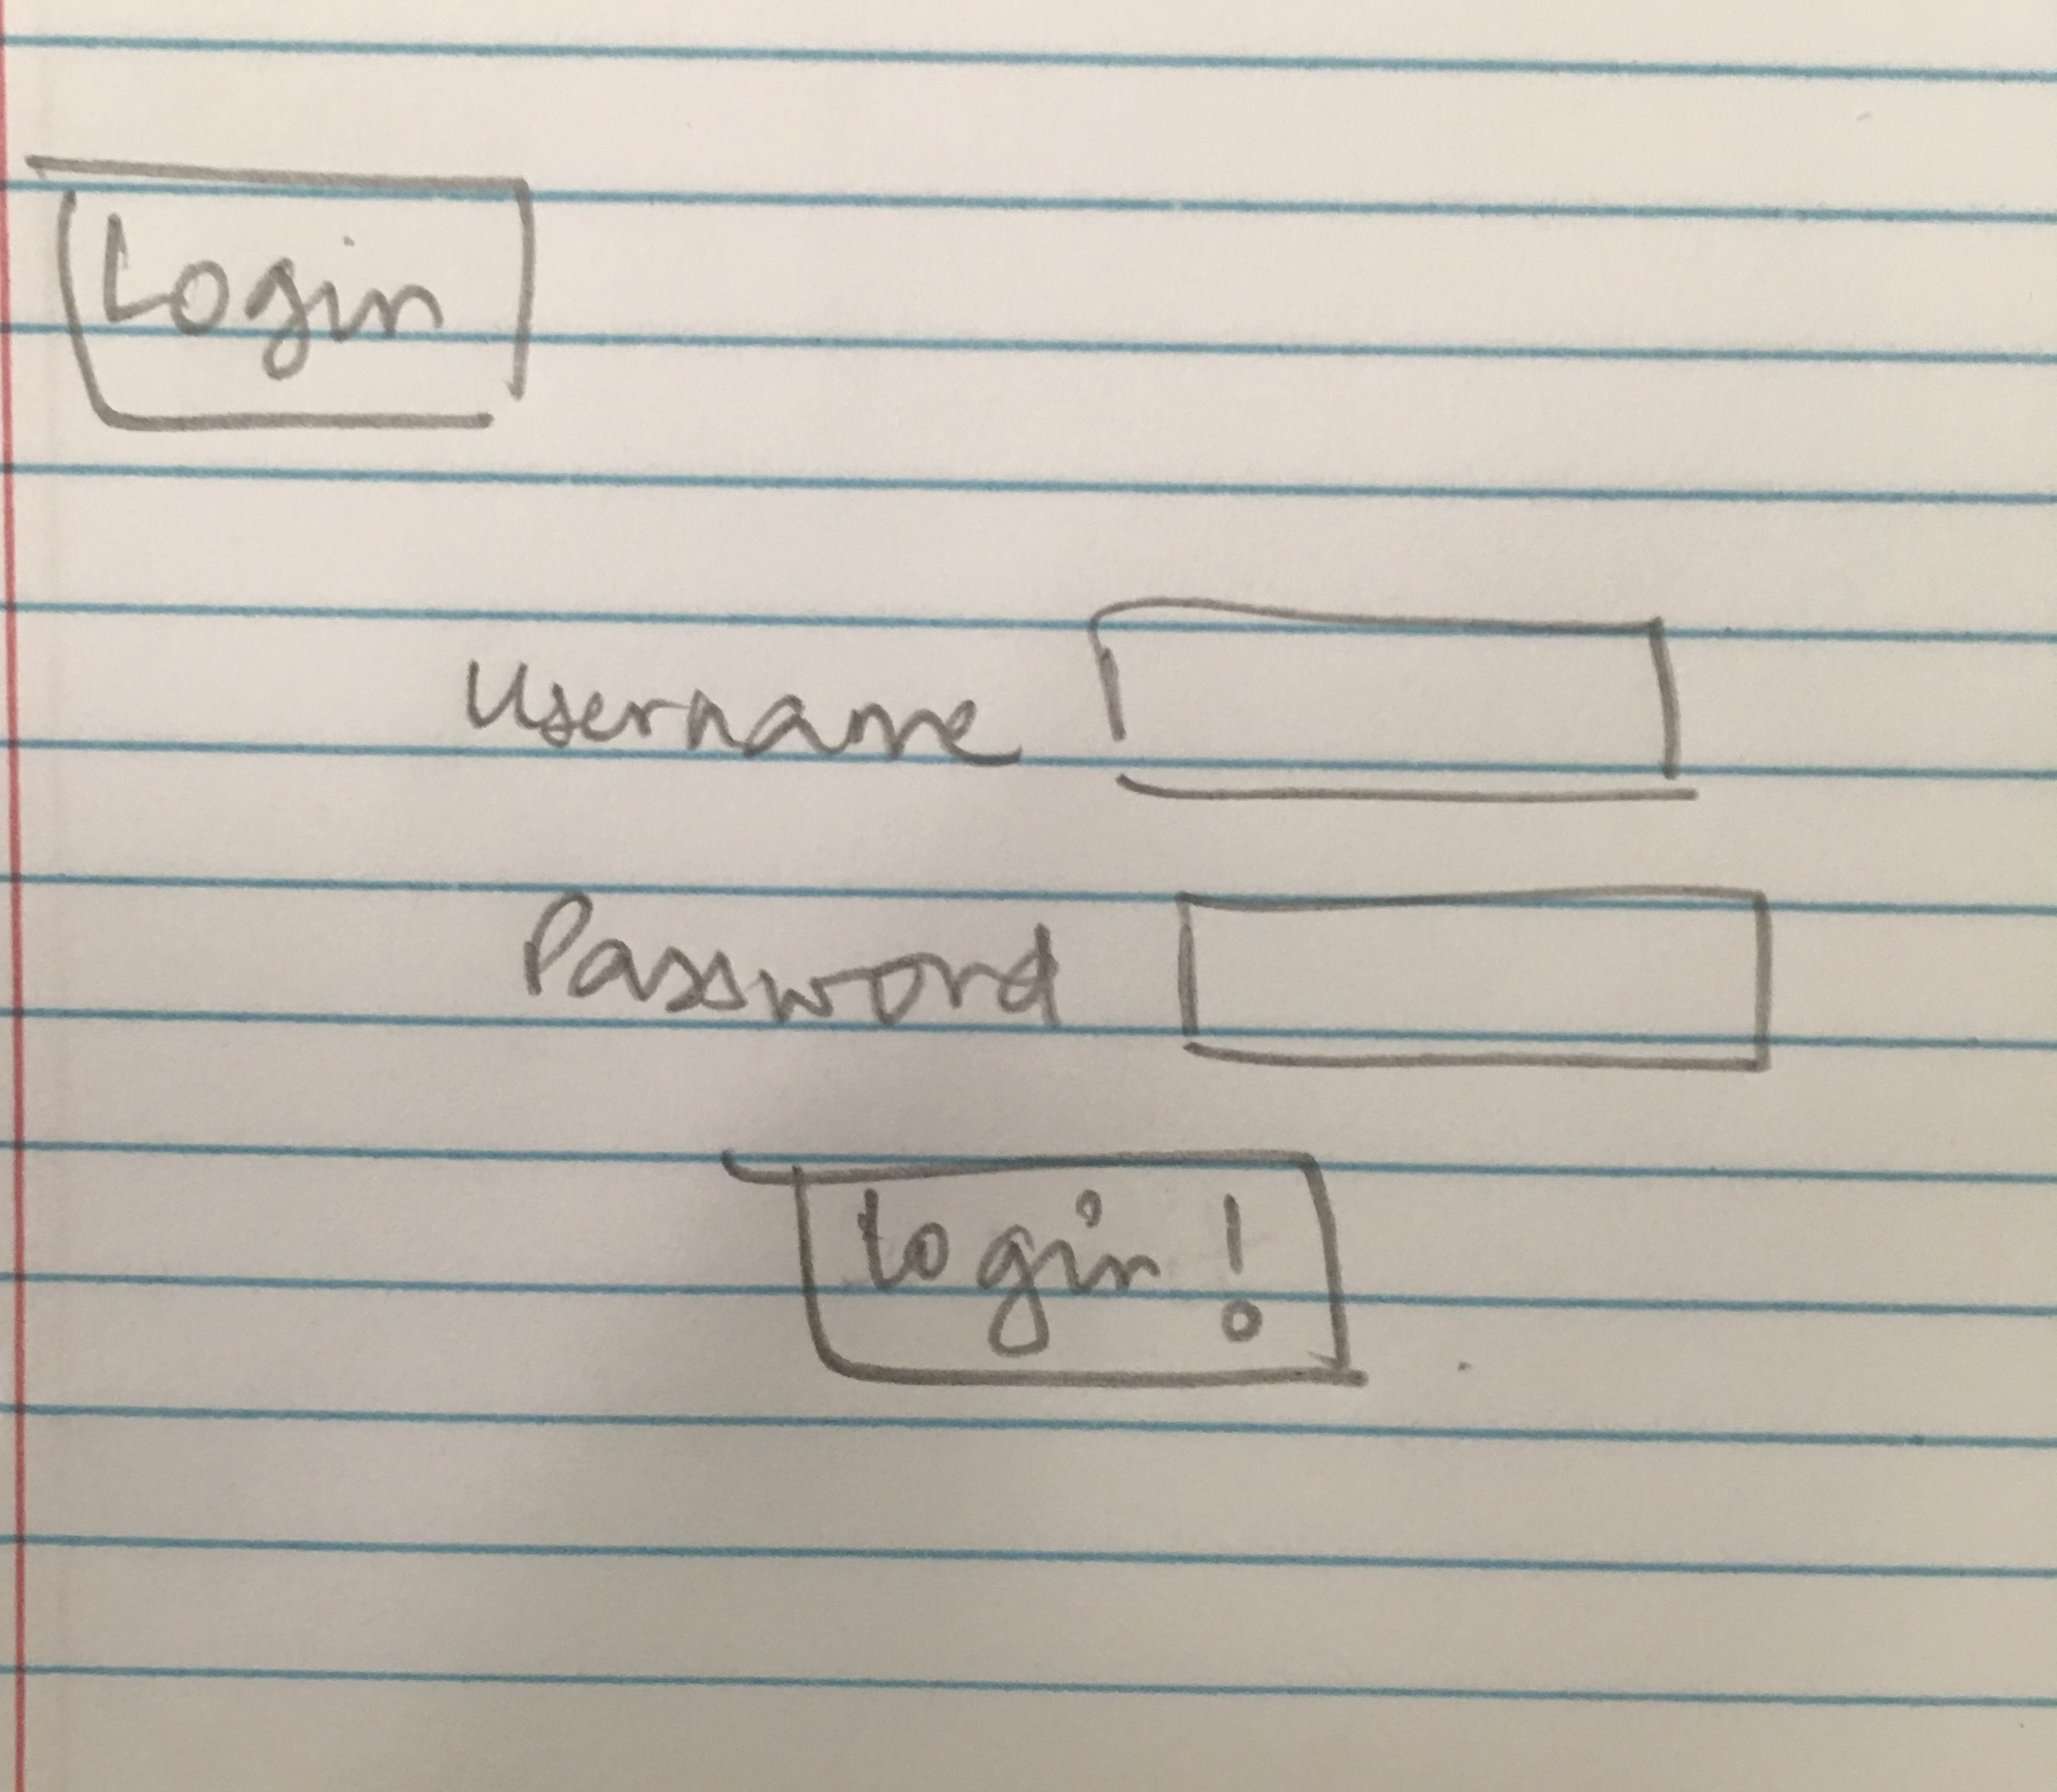 Login
Username
Password
login!